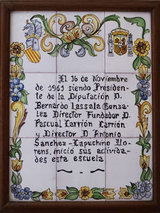 El 16 de Noviembre
de 1961 siendo Presiden-
te de la Diputación D.
Bernardo Lassala Gonza-
lez Director Fundador D.
Pascual Carrión Carrión
y Director D. Antonio
Sanchez-Capuchino Llo-
rens, inició sus activida-
des esta escuela